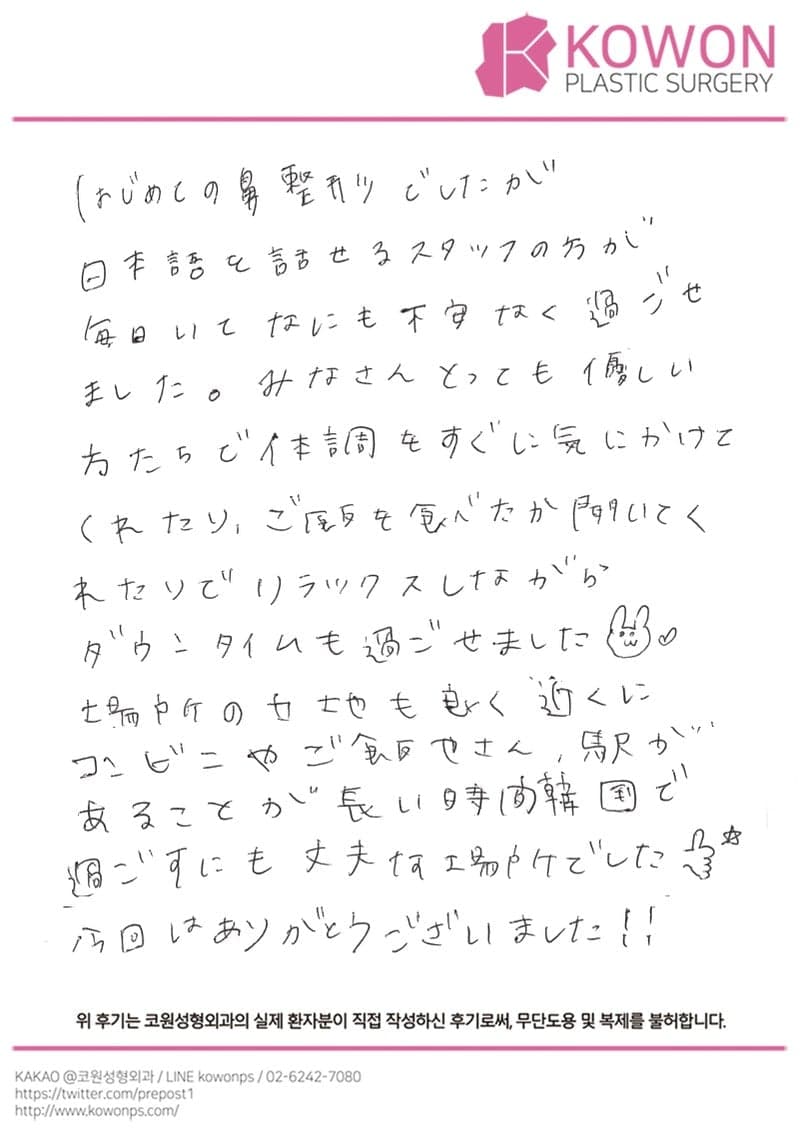 KOWON
PLASTIC SURGERY
はじめての鼻整形でしたが
日本語を話せるスタッフの方が
毎日いてなにも不安なく過ごせ
ました。みなさんとっても優しい
方たちで体調をすぐに気にかけて
くれたり、ご飯を食べたか聞いてく
れたりでリラックスしながら
ダウンタイムも過ごせました
場所の立地も良く近くに
コンビニやご飯やさん、駅が
あることが長い時間韓国で
過ごすにも丈夫な場所でした
今回はありがとうございました!!
위 후기는 코원성형외과의 실제 환자분이 직접 작성하신 후기로써, 무단도용 및 복제를 불허합니다.
KAKAO @코원성형외과 / LINE kowonps / 02-6242-7080
https://twitter.com/prepost1
http://www.kowonps.com/